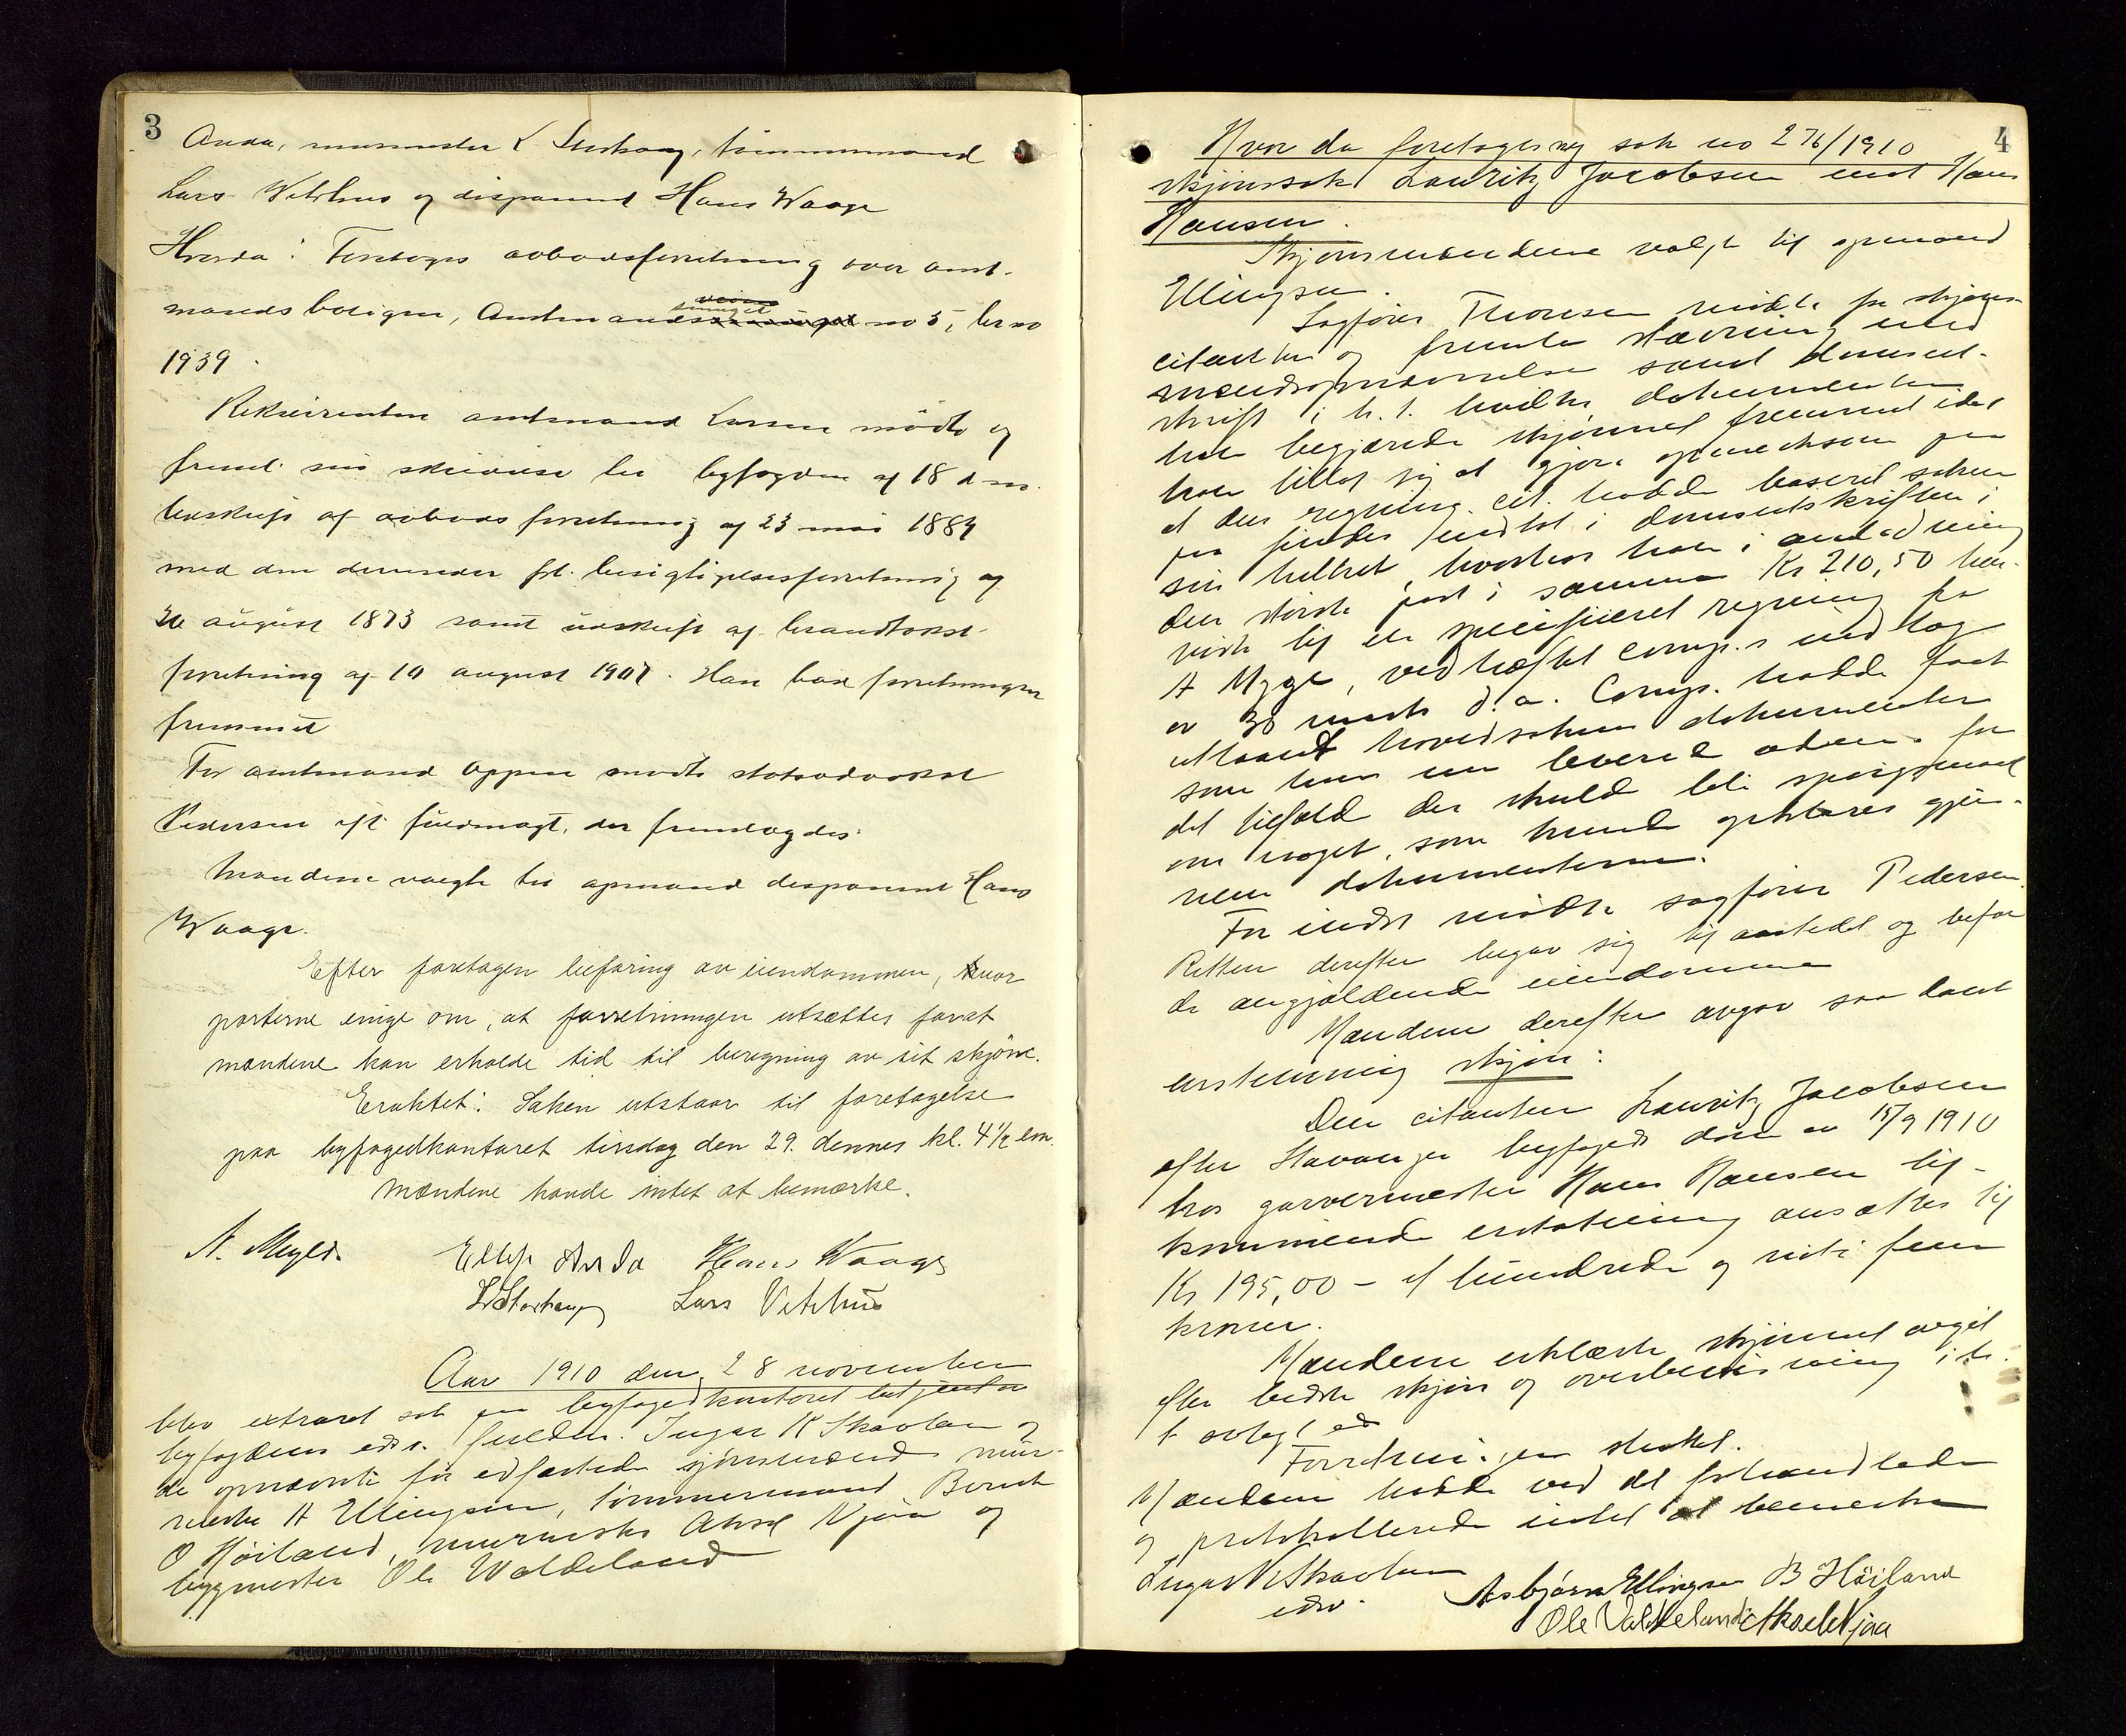 3
Anda, murmester L Storhaug, tömmermand
Lars Vetrhus og disponent Hans Waage
Hvorda: Foretoges avbodsforretning over amt-
mandsboligen, Amtmands no 5, br no
1939.
Rekvirenten amtmand Larsen mødte og
freml. sin skrivelse til byfogden af 18 d. m.
utskrift af avbodsforretning af 23 mai 1884
med den derunder frl. besigtigelsesforretning af
august 1873 samt utskrift af brandtakst-
forretning af 10 august 1907. Han bad forretningen
fremmet
For amtmand Oppen mødte statsadvokat
Pedersen ifl. fuldmagt, der fremlagdes.
Mændene valgte til opmand disponent Hans
Waage.
Efter foretagen befaring av eiendommen, var
parterne enige om, at forretningen utsættes forat
mændene kan erholde tid til beregning av sit skjøn.
Eraktet: Saken utstaar til foretagelse
paa byfogedkontoret tirsdag den 29. dennes kl. 4½ em.
Mændene havde intet at bemærke.
Ellef Anda Hans Waage
L Storhaug Lars Vetrhus
Aar 1910 den 28 november
blev extraret sat paa byfogedkontoret betjent av
byfogdens edsv. fuldm. Ingar K Skavlan og
de opnævnte før edfæstede skjønsmænd mur-
mester A Ellingsen, tømmermand Bernt
O Høiland, murmester Aksel Njaa og
bygmester Ole Waldeland
4
Hvor da foretoges sak no 276/1910
skjønssak Lauritz Jacobsen mot Hans
Hansen.
Skjønsmændene valgte til opmand
Ellingsen.
Sagfører Thorsen mødte for skjøns-
citanten og fremla stævning med
mændsopnævnelse samt domsut-
skrift i h. t. hvilke dokumenter
han begjærede skjønnet fremmet idet
han tillot sig at gjøre opmerksom paa
at den regning cit. hadde baseret saken
paa findes indtat i domsutskriften i
sin helhet, hvorhos han i anledning
den største post i samme Kr 210,50 hen-
viste til en specificeret regning fra
A Mygge, vedhæftet comp.s indlæg
av 30 marts d. a. Comp. hadde faat
utlaant hovedsakens dokumenter
som han nu leverte rtten for
det tilfæld der skulde bli spørgsmaal
om noget, som kunde opklares gjen-
nem dokumenterne.
For indst. mødte sagfører Pedersen.
Retten derefter begav sig til aastedet og befor
de angjældende eiendomme
Mændene derefter avgav saa lydende
enstemmig skjøn:
Den citanten Lauritz Jacobsen
efter Stavanger byfogeds dom av 15/9 1910
hos garvermester Hans Hansen til-
kommende erstatning ansættes til
Kr 195,00 – et hundrede og nitti fem
kroner.
Mændene erklærte skjønnet avgit
efter bedste skjøn og overbevisning i h.
t. avlagt ed
Forretningen sluttet.
Mændene hadde ved det forhandlede
og protokollerede intet at bemerke
Ingar K Skavlan
edsv.
Asbjørn Ellingsen B Höiland
Ole Valdeland Aksel Njaa